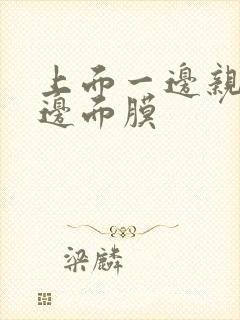 上而一邊親
邊而膜
梁麟